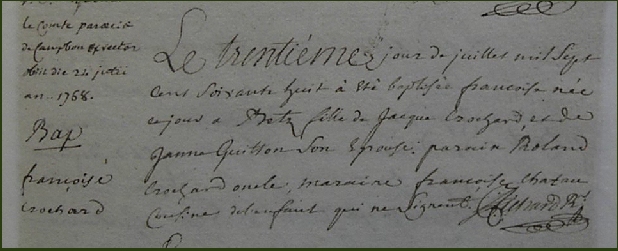 le Comte paroisse
de Campbon
an. 1768.
Bap
françoise
Crochard
Le trentième jour de juillet mil Sept
Cent Soixante huit à été baptisée francoise née
ce jour a fille de Jacque Crochard, et de
Janne Guitton Son Epouse: parain Roland
Crochard oncle, maraine francoise
Cousine de lenfant qui ne Signent.